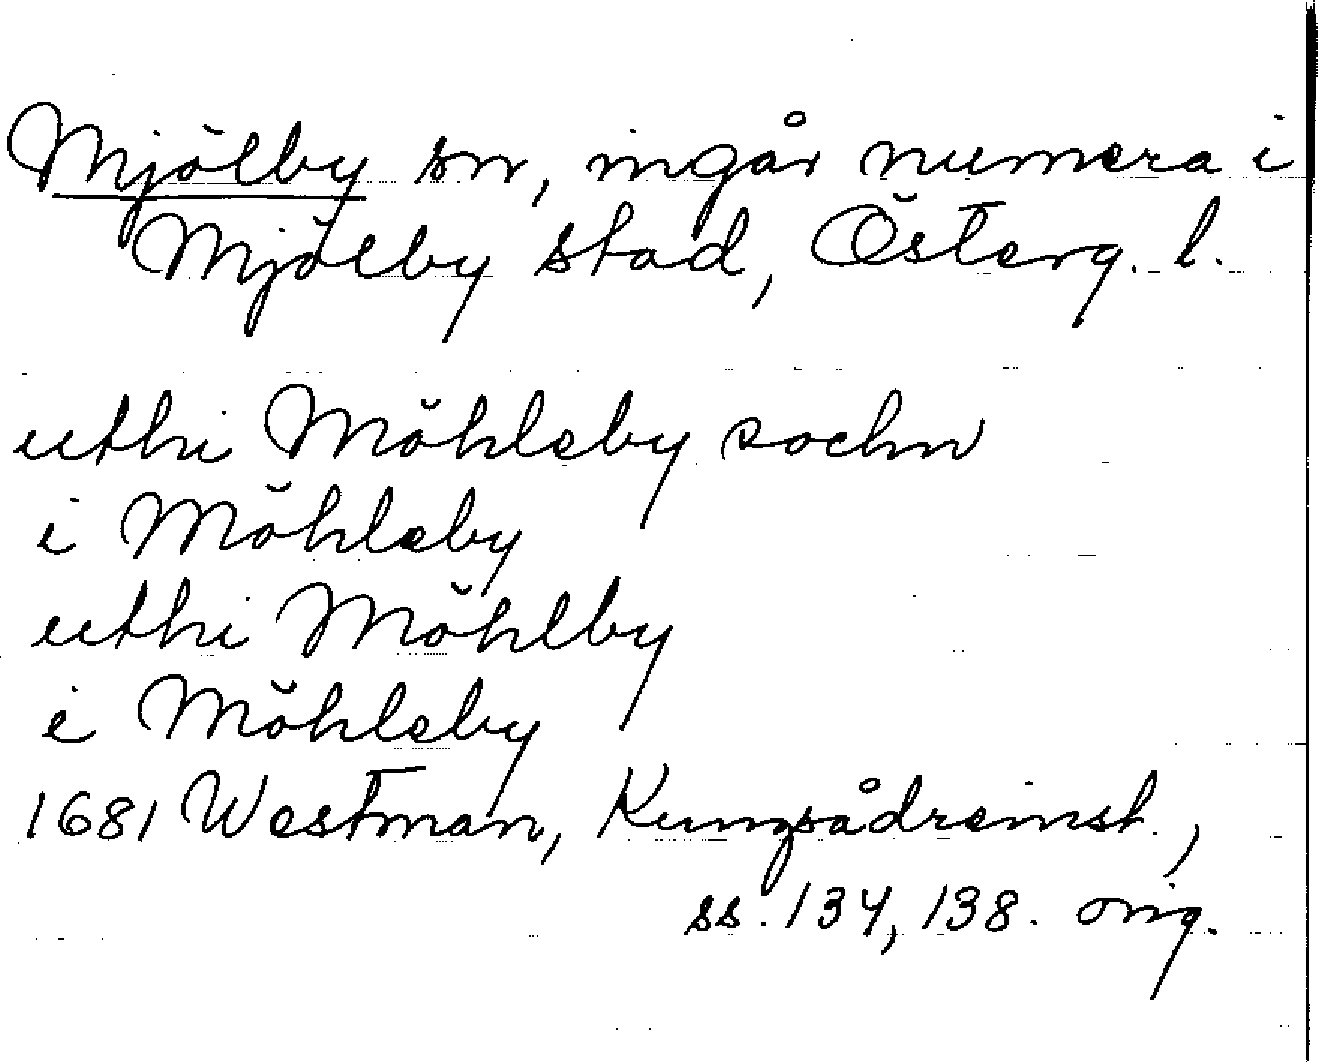 Mjölby sn, ingår numera i
Mjölby stad, Österg. l.
uthi Möhleby sochn
i Möhleby
uthi Möhlby
i Möhleby
1681 Westman, Kungsådreinst.,
ss. 134, 138. orig.